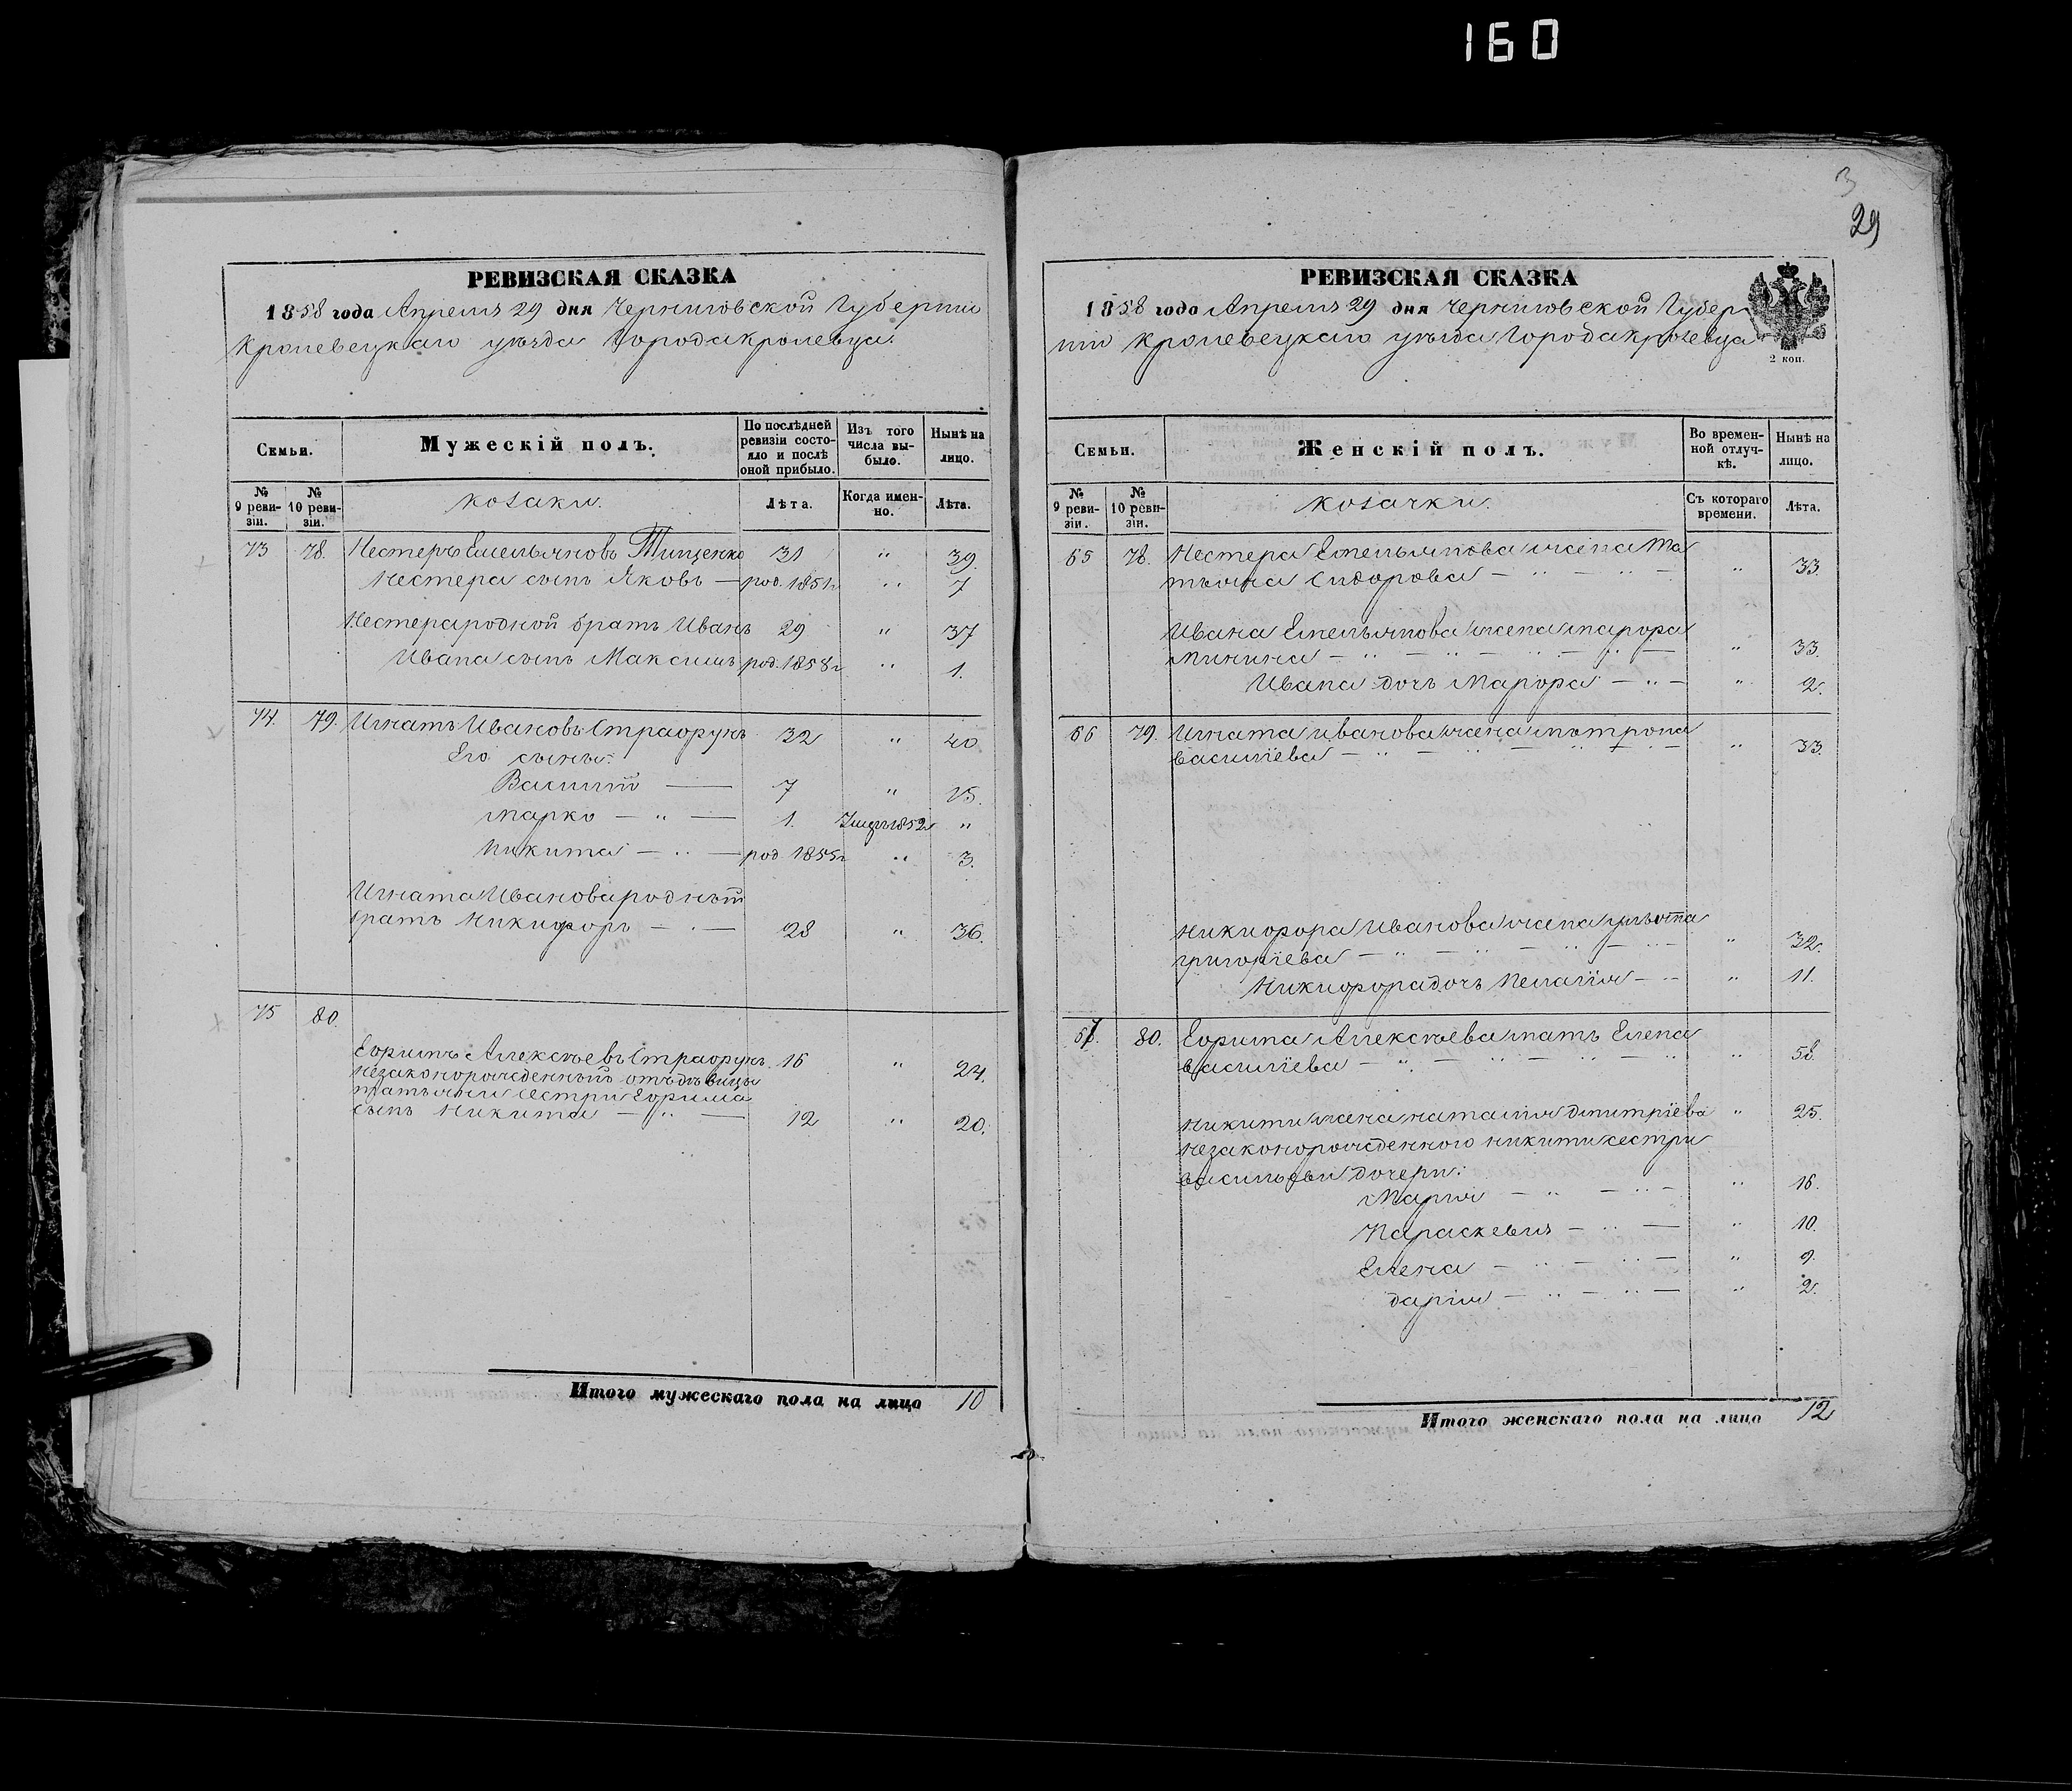 160
3
29
РЕВИЗСКАЯ СКАЗКА
1858 года Апреля 29 дня Черниговской Губернии
Кролевецкаго уезда Города Кролевца.
Семьи.
Мужескій полъ.
По послѣдней ревизіи состояло и послѣ оной прибыло.
Изъ того числа выбыло.
Нынѣ на лицо.
№ 9 ревизіи.
№ 10 ревизіи.
козаки.
Лѣта.
Когда именно.
Лѣта.
73 78. Нестеръ Емельяновъ Тищенко 31 " 39.
Нестера сынъ Яковъ — род. 1851г " 7
Нестера родной братъ Иванъ 29 " 37
Ивана сынъ Максимъ род. 1858г " 1.
74. 79. Игнатъ Ивановъ Страфунъ 32 " 40.
Его сыны:
Василій — 7 " 15.
Марко — " — 1. Умеръ 1852г "
Никита — " — род 1855г " 3.
Игната Иванова родный
братъ Никифоръ — " — 28 " 36.
75 80.
Ефримъ Алексѣевъ Страфунъ 16 " 24.
Незаконорожденный отъ дѣвицы
татьяни сестри Ефрима
сынъ Никита — " — 12 " 20.
Итого мужескаго пола на лицо 10
РЕВИЗСКАЯ СКАЗКА
1858 года Апреля 29 дня Черниговской Губер
ніи Кролевецкаго уезда Города Кролевца
2 коп.
Семьи.
Женскій полъ.
Во временной отлучкѣ.
Нынѣ на лицо.
№ 9 ревизіи.
№ 10 ревизіи.
козачки.
Съ котораго времени.
Лѣта.
65 78. Нестера Емельянова жена Та
тьяна Сидорова — " — " — " 33.
Ивана Емельянова жена марфа
Минина — " — " — " — " — " 33.
Ивана дочь Марфа — " — " 2.
66 79. Игната иванова жена мотрона
василіева — " — " — " — " 33.
Никифора Иванова жена
григоріева — " — " — " — " 32.
Никифора дочь Пелагія — " 11.
67. 80. Ефрима Алексѣева мать Елена
василіева — " — " — " — " 58.
Никити жена наталія Дмитріева " 25.
Незаконорожденного никити сестри
дочери:
Марія — " — " — " 16.
Параскевия — " — " 10.
Елена — " — " — " 9.
дарія — " — " — " 2.
Итого женскаго пола на лицо 12